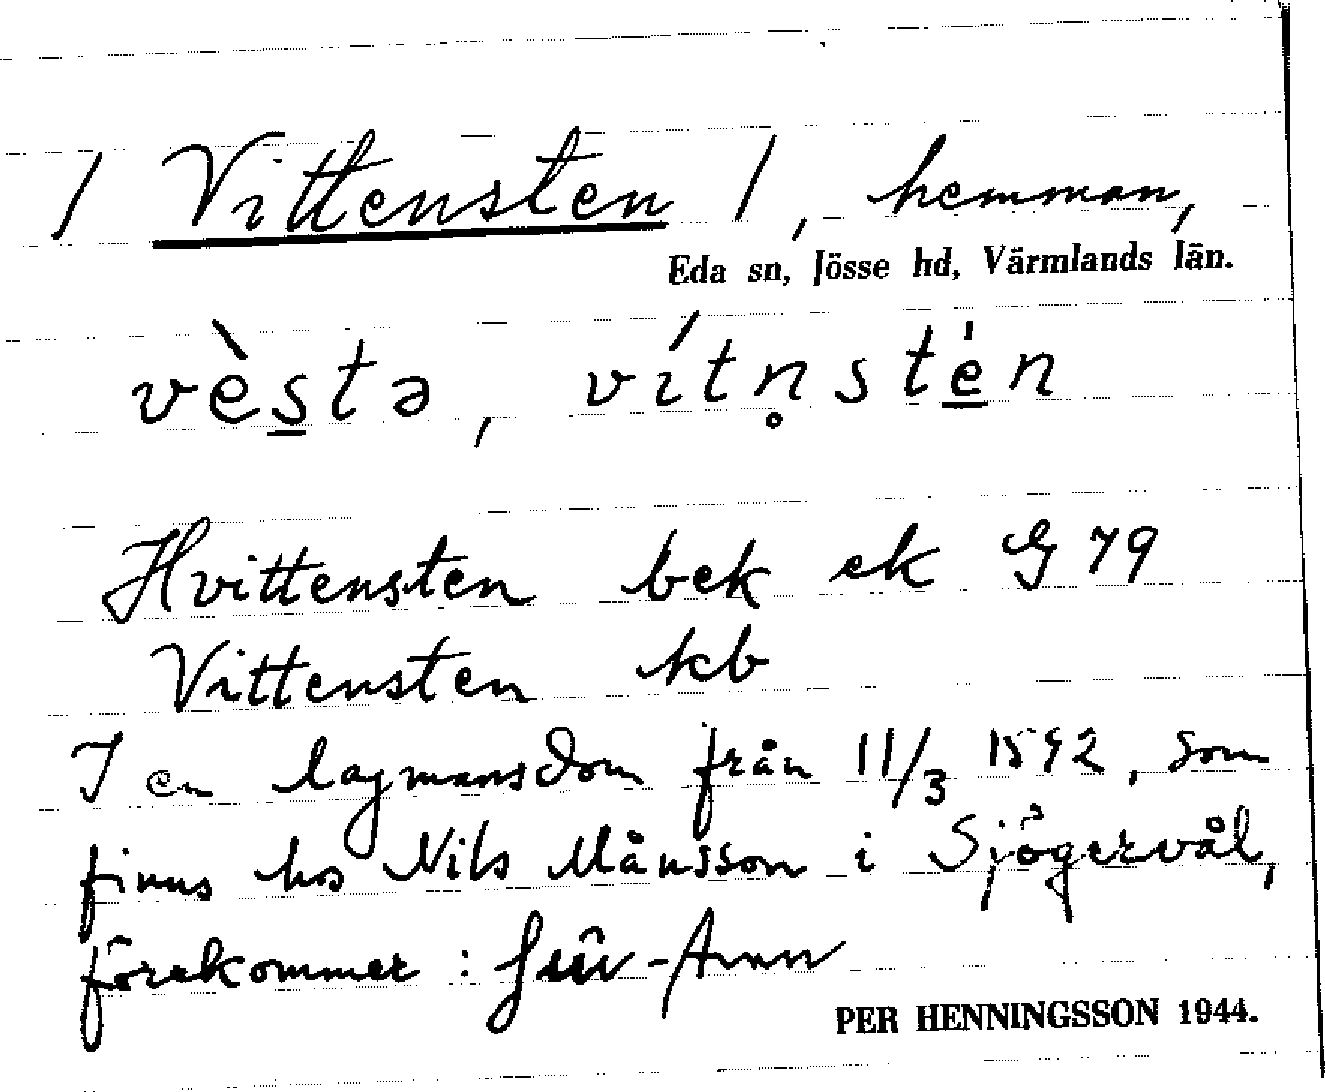 / Vittensten / , hemman,
Eda sn, Jösse hd, Värmlands län.
vè̱stə, vítn̥sté̱n
Hvittensten bek ek G 79
Vittensten kb
I en lagmansdom från 11/3 1592, som
finns hos Nils Månsson i Sjögervål,
förekommer :
PER HENNINGSSON 1944.